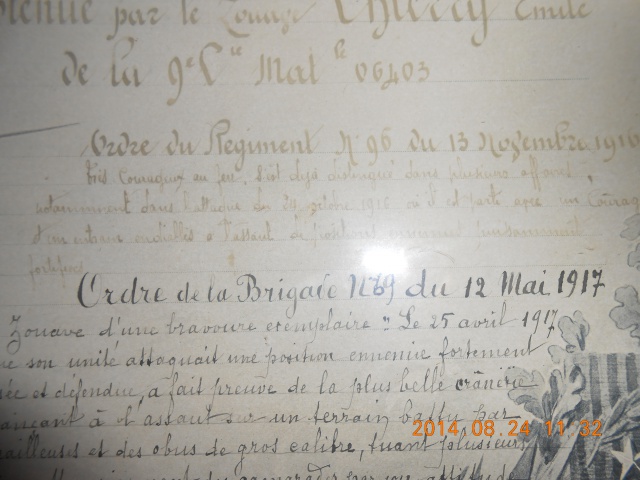 obtenue par le Zouave Thierry Emile
de la 9e Cie Mat le 06403
Ordre du Régiment N°96 du 13 Novembre 1916
Très Courageux au feu, s'est déjà distingué dans plusieurs affaires,
notamment dans l'attaque du 24 octobre 1916 où il est parti avec un Courage
d'un entrain endiablés à l'assaut de positions ennemies puissamment
fortifiées
Ordre de la Brigade N°69 du 12 Mai 1917
Zouave d'une bravoure exemplaire " Le 25 avril 1917
son unité attaquait une position ennemie fortement
et defendue, a fait preuve de la plus belle crânerie
à l'assaut sur un terrain battu par
mitrailleuses et des obus de gros calibre, tuant plusieurs
camarades par son attitude
2014.08.24 11:32